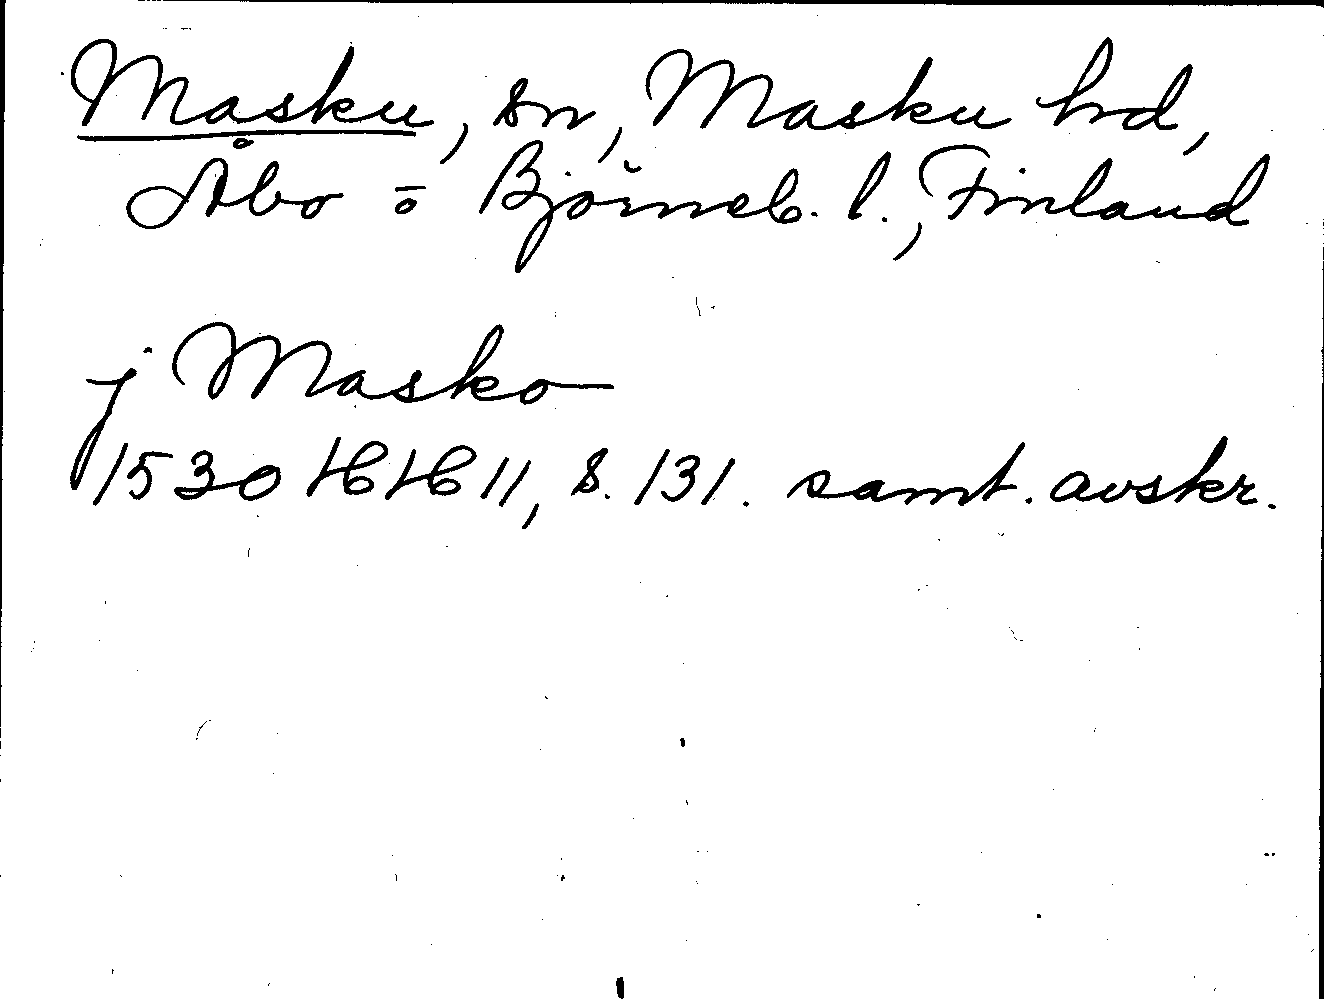 Masku, sn, Masku hd,
Åbo o Björneb. l., Finland
j Masko
1530 16/6 11, s. 131. samt. avskr.